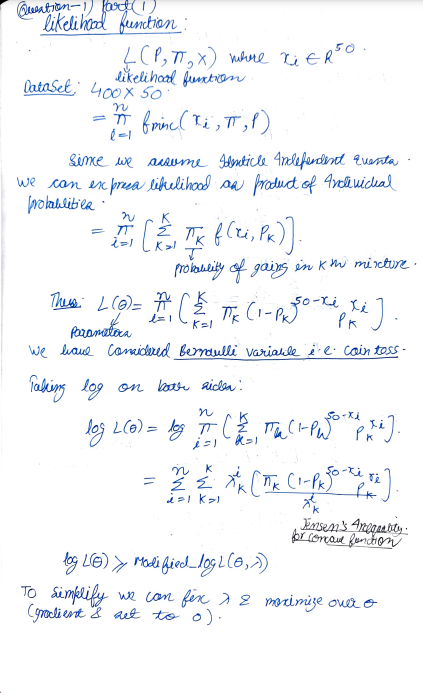 Question-1) Part(1)
likelihood function:
L(P, Π, X) where xi ∈ R^50.
likelihood function
DataSet: 400 x 50
= n Π i=1 fmix(xi, π, P)
Since we assume Identicle Independent events.
we can express likelihood as product of Individual
probabilities.
= n Π i=1 [ K Σ k=1 πk f(xi, Pk) ].
probability of going in K th mixture.
Thus: L(θ) = n Π i=1 [ K Σ k=1 πk (1-Pk)^50-xi Pk^xi ].
Parameters
We have Considered Bernoulli variable i.e. coin toss.
Taking log on both sides:
log L(θ) = log n Π i=1 [ K Σ k=1 πk (1-Pk)^50-xi Pk^xi ].
= n Σ i=1 K Σ k=1 λk^i [ πk (1-Pk)^50-xi Pk^xi ]
λk^i
Jensen's Inequality.
for concave function
log L(θ) ⩾ Modified_log L(θ, λ)
To simplify we can fix λ & maximize over θ
(gradient & set to 0).